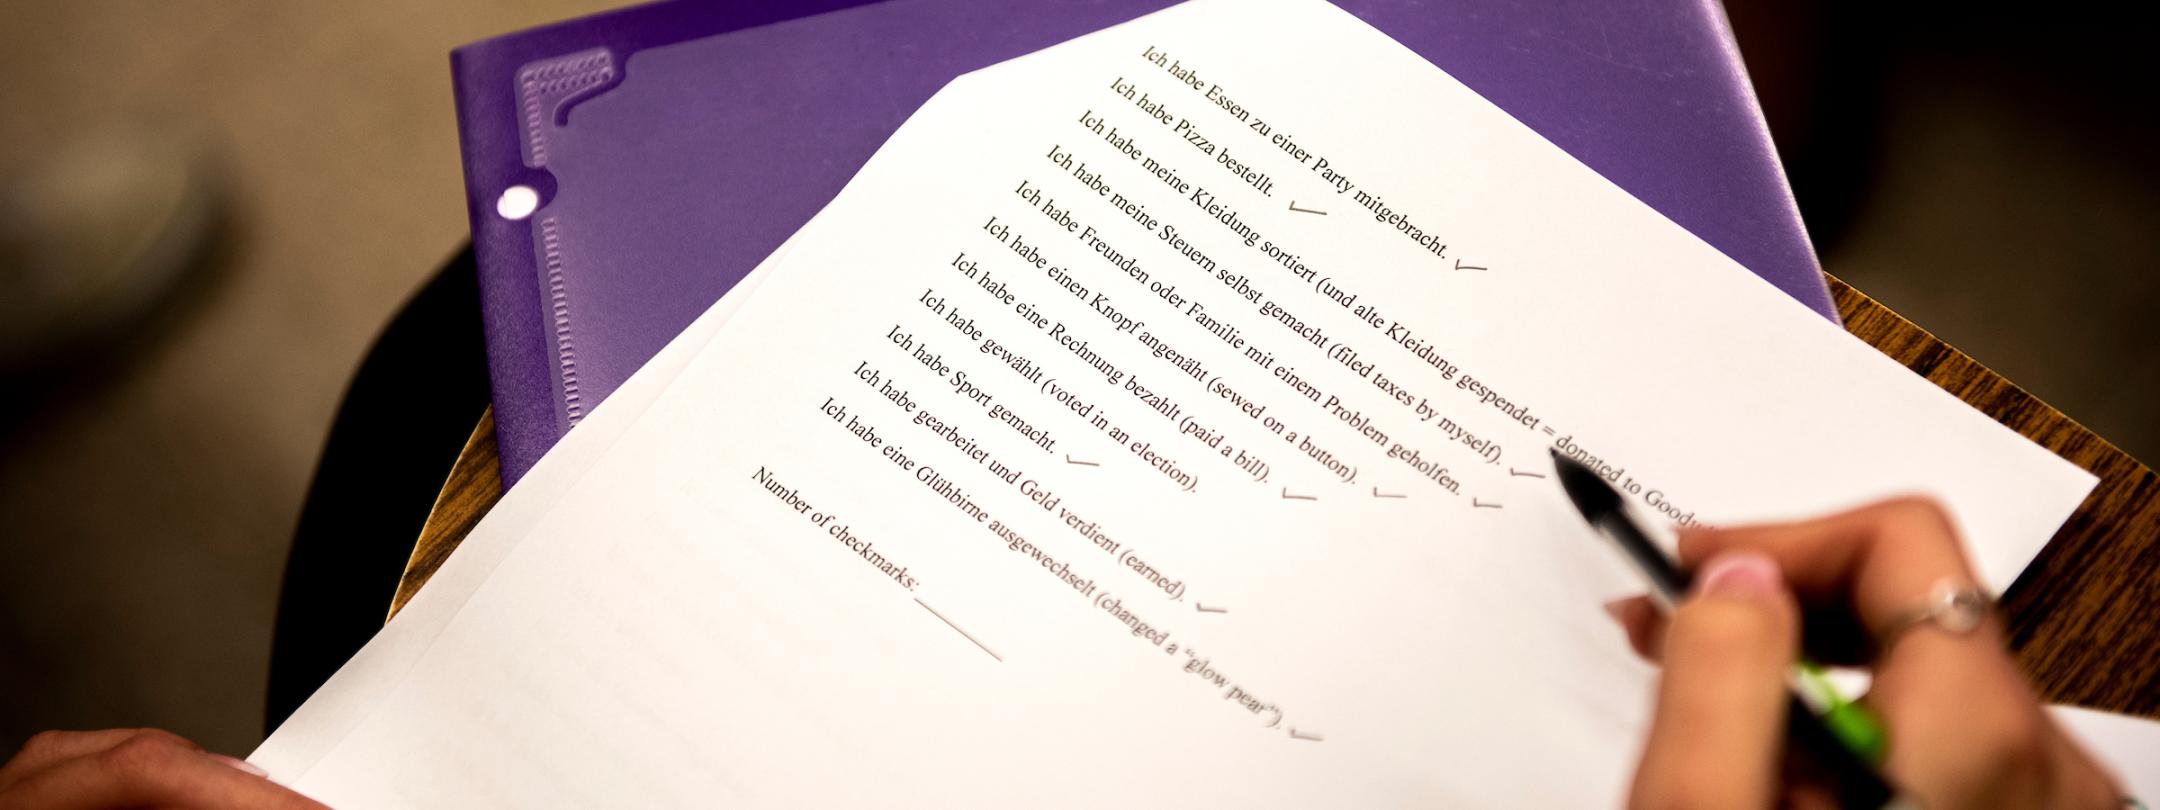 Ich habe Essen zu einer Party mitgebracht. ✓
Ich habe Pizza bestellt. ✓
Ich habe meine Kleidung sortiert (und alte Kleidung gespendet = donated to
Ich habe meine Steuern selbst gemacht (filed taxes by myself). ✓
Ich habe Freunden oder Familie mit einem Problem geholfen. ✓
Ich habe einen Knopf angenäht (sewed on a button). ✓
Ich habe eine Rechnung bezahlt (paid a bill). ✓
Ich habe gewählt (voted in an election).
Ich habe Sport gemacht. ✓
Ich habe gearbeitet und Geld verdient (earned). ✓
Ich habe eine Glühbirne ausgewechselt (changed a “glow pear”). ✓
Number of checkmarks: ______